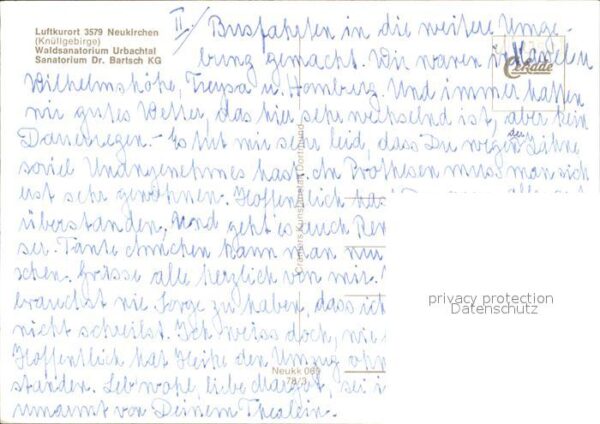 Luftkurort 3579 Neukirchen
(Knüllgebirge)
Waldsanatorium Urbachtal
Sanatorium Dr. Bartsch KG
II/ Busfahrten in die weitere Umge-
bung gemacht. Wir waren in
Cekade
Wilhelmshöhe, Treysa u. Homburg. Und immer hatten
wir gutes Wetter, das hier sehr wechselnd ist, aber kein
Dauerregen. - Es tut mir sehr leid, dass Du wegen der Zähne
soviel Unangenehmes hast. An Prothesen muss man sich
erst sehr gewöhnen. Hoffentlich
überstanden. Und geht es auch
ser. Tante Annchen kann man nur
schen. Grüsse alle herzlich von mir.
brauchst nie Sorge zu haben, dass ich
nicht schreibst. Ich weiss doch, wie
Hoffentlich hat Heike den Umzug
standen. Lebwohl, liebe Margot, sei
umarmt von Deinem Thealein.
Cramers Kunstanstalt Dortmund
Neukk 069
78/3
privacy protection
Datenschutz